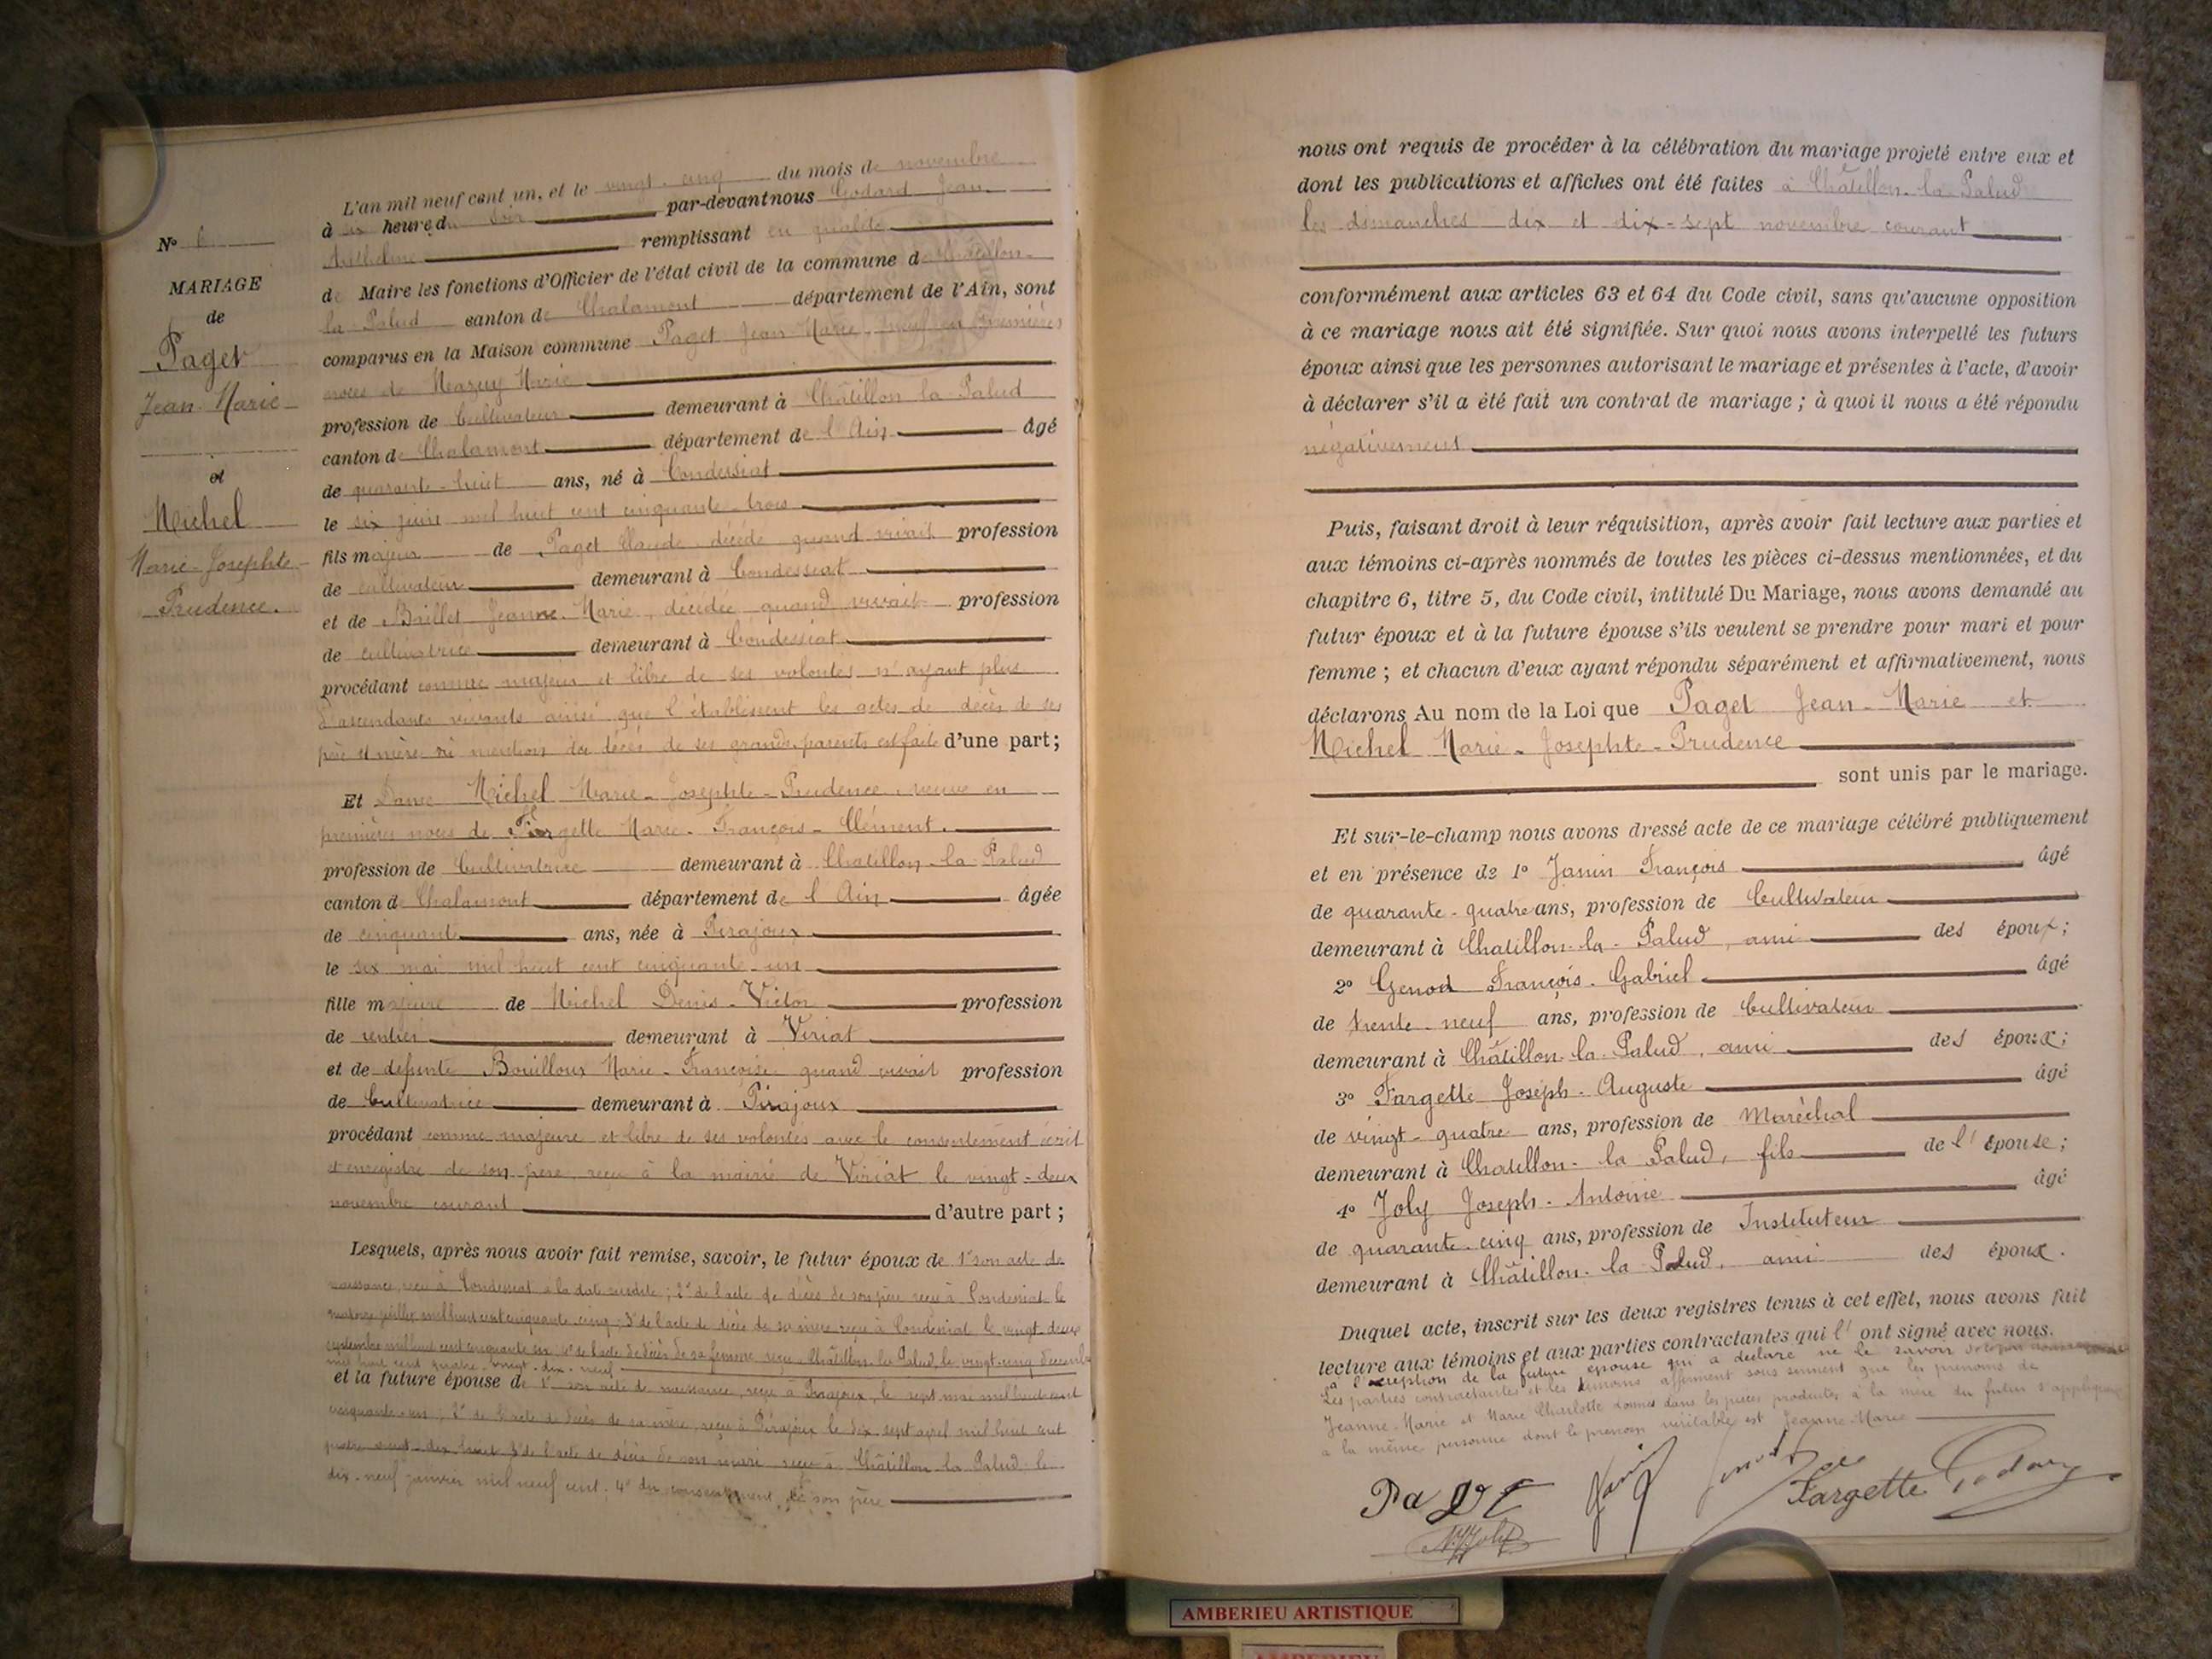 L'an mil neuf cent un, et le vingt-cinq du mois de novembre
à six heures du soir par-devant nous Godard Jean
Anthelme remplissant en qualité
de Maire les fonctions d'Officier de l'état civil de la commune de Châtillon-
la-Palud canton de Chalamont département de l'Ain, sont
comparus en la Maison commune Paget Jean-Marie, veuf en premières
noces de Mazuy Marie
profession de Cultivateur demeurant à Châtillon la Palud
canton de Chalamont département de l'Ain âgé
de quarante-huit ans, né à Condessiat
le six juin mil huit cent cinquante-trois
fils majeur de Paget Claude décédé quand vivait profession
de cultivateur demeurant à Condessiat
et de Baillet Jeanne-Marie, décédée quand vivait profession
de cultivatrice demeurant à Condessiat
procédant comme majeur et libre de ses volontés n'ayant plus
d'ascendants vivants ainsi que l'établissent les actes de décès de ses
père et mère où mention du décès de ses grands-parents est faite d'une part;
Et Dame Michel Marie-Josephte-Prudence, veuve en
premières noces de Fargette Marie-François-Clément.
profession de Cultivatrice demeurant à Chatillon-la-Palud
canton de Chalamont département de l'Ain âgée
de cinquante ans, née à Pirajoux
le six mai mil huit cent cinquante-un
fille majeure de Michel Denis-Victor profession
de rentier demeurant à Viriat
et de défunte Bouilloux Marie-Françoise quand vivait profession
de Cultivatrice demeurant à Pirajoux
procédant comme majeure et libre de ses volontés avec le consentement écrit
et enregistré de son père, reçu à la mairie de Viriat le vingt-deux
novembre courant d'autre part;
Lesquels, après nous avoir fait remise, savoir, le futur époux de 1° son acte de
naissance reçu à Condessiat à la date susdite; 2° de l'acte de décès de son père reçu à Condessiat le
quatorze juillet mil huit cent cinquante cinq; 3° de l'acte de décès de sa mère reçu à Condessiat le vingt-deux
septembre mil huit cent cinquante 4° de l'acte de décès de sa femme reçu à Châtillon-la-Palud, le vingt-cinq décembre
mil huit cent quatre-vingt-dix-neuf
et la future épouse de 1° son acte de naissance, reçu à Pirajoux, le sept mai mil huit cent
cinquante-un; 2° de l'acte de décès de sa mère, reçu à Pirajoux le dix sept avril mil huit cent
quatre vingt-dix huit 3° de l'acte de décès de son mari reçu à Châtillon-la-Palud le
dix-neuf janvier mil neuf cent. 4° du consentement de son père
N° 6
MARIAGE
de
Paget
Jean-Marie
et
Michel
Marie-Josephte-
Prudence.
nous ont requis de procéder à la célébration du mariage projeté entre eux et
dont les publications et affiches ont été faites à Châtillon-la-Palud
les dimanches dix et dix-sept novembre courant
conformément aux articles 63 et 64 du Code civil, sans qu'aucune opposition
à ce mariage nous ait été signifiée. Sur quoi nous avons interpellé les futurs
époux ainsi que les personnes autorisant le mariage et présentes à l'acte, d'avoir
à déclarer s'il a été fait un contrat de mariage; à quoi il nous a été répondu
négativement
Puis, faisant droit à leur réquisition, après avoir fait lecture aux parties et
aux témoins ci-après nommés de toutes les pièces ci-dessus mentionnées, et du
chapitre 6, titre 5, du Code civil, intitulé Du Mariage, nous avons demandé au
futur époux et à la future épouse s'ils veulent se prendre pour mari et pour
femme; et chacun d'eux ayant répondu séparément et affirmativement, nous
déclarons Au nom de la Loi que Paget Jean-Marie et
Michel Marie-Josephte-Prudence
sont unis par le mariage.
Et sur-le-champ nous avons dressé acte de ce mariage célébré publiquement
et en présence de 1° Janin François âgé
de quarante-quatre ans, profession de Cultivateur
demeurant à Chatillon-la-Palud, ami des époux;
2° Genod François-Gabriel âgé
de trente-neuf ans, profession de Cultivateur
demeurant à Châtillon-la-Palud, ami des époux;
3° Fargette Joseph-Auguste âgé
de vingt-quatre ans, profession de Maréchal
demeurant à Chatillon-la Palud, fils de l'épouse;
4° Joly Joseph-Antoine âgé
de quarante-cinq ans, profession de Instituteur
demeurant à Châtillon-la Palud, ami des époux.
Duquel acte, inscrit sur les deux registres tenus à cet effet, nous avons fait
lecture aux témoins et aux parties contractantes qui l' ont signé avec nous.
à l'exception de la future épouse qui a déclaré ne le savoir
Les parties contractantes et les témoins affirment sous serment que les prénoms de
Jeanne-Marie et Marie Charlotte donnés dans les pièces produites à la mère du futur s'appliquent
à la même personne dont le prénom véritable est Jeanne-Marie
Paget Janin Genod Fargette Godard
Joly
AMBERIEU ARTISTIQUE
AMBERIEU